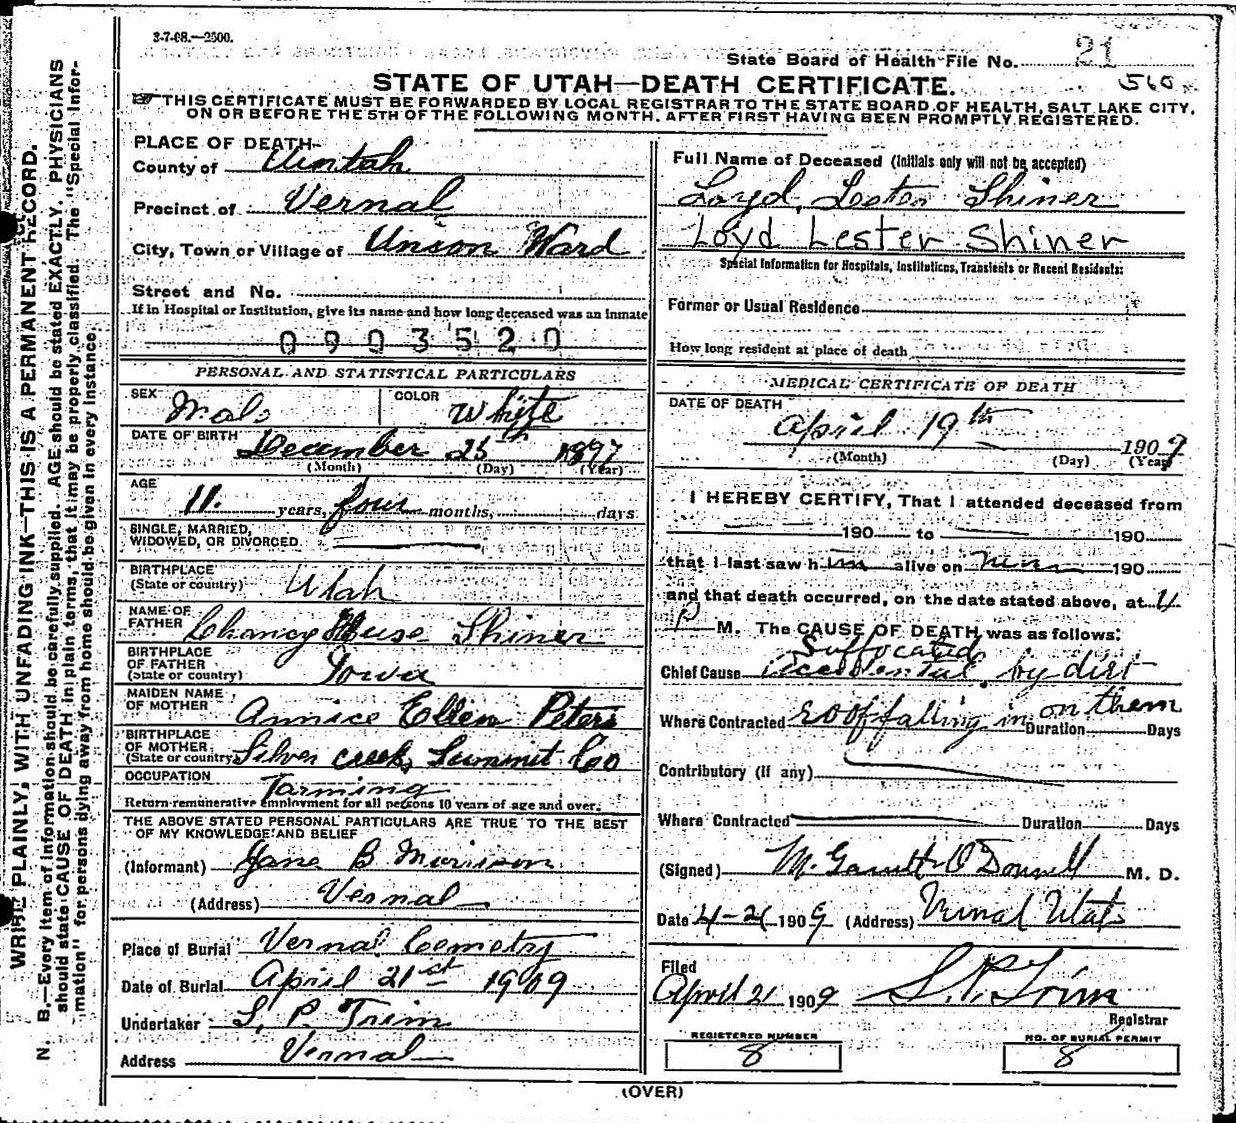 3-7-08.—2500.
State Board of Health File No. 21
560
STATE OF UTAH—DEATH CERTIFICATE.
THIS CERTIFICATE MUST BE FORWARDED BY LOCAL REGISTRAR TO THE STATE BOARD OF HEALTH, SALT LAKE CITY,
ON OR BEFORE THE 5TH OF THE FOLLOWING MONTH, AFTER FIRST HAVING BEEN PROMPTLY REGISTERED.
WRITE PLAINLY, WITH UNFADING INK—THIS IS A PERMANENT RECORD.
N. B.—Every item of information should be carefully supplied. AGE should be stated EXACTLY. PHYSICIANS
should state CAUSE OF DEATH in plain terms, that it may be properly classified. The "Special Infor-
mation" for persons dying away from home should be given in every instance
PLACE OF DEATH
County of Uintah
Precinct of Vernal
City, Town or Village of Union Ward
Street and No.
If in Hospital or Institution, give its name and how long deceased was an inmate
0903520
PERSONAL AND STATISTICAL PARTICULARS
SEX Male
COLOR White
DATE OF BIRTH December 25th 1897
(Month) (Day) (Year)
AGE
11 years, four months, days
SINGLE, MARRIED,
WIDOWED, OR DIVORCED.
BIRTHPLACE
(State or country) Utah
NAME OF
FATHER Chancy Shiner
BIRTHPLACE
OF FATHER
(State or country) Iowa
MAIDEN NAME
OF MOTHER Annice Ellen Peters
BIRTHPLACE
OF MOTHER
(State or country) Silver creek, Summit Co
OCCUPATION
Farming
Return remunerative employment for all persons 10 years of age and over.
THE ABOVE STATED PERSONAL PARTICULARS ARE TRUE TO THE BEST
OF MY KNOWLEDGE AND BELIEF
(Informant) Jane B Morrison
(Address) Vernal
Place of Burial Vernal Cemetry
Date of Burial April 21st 1909
Undertaker S. P. Trim
Address Vernal
Full Name of Deceased (Initials only will not be accepted)
Loyd, Lester Shiner
Loyd Lester Shiner
Special Information for Hospitals, Institutions, Transients or Recent Residents:
Former or Usual Residence
How long resident at place of death
MEDICAL CERTIFICATE OF DEATH
DATE OF DEATH
April 19th 1909
(Month) (Day) (Year)
I HEREBY CERTIFY, That I attended deceased from
190 to 190
that I last saw him alive on 190
and that death occurred, on the date stated above, at 4
P M. The CAUSE OF DEATH was as follows:
Suffocated
Chief Cause Accidental by dirt
Where Contracted roof falling in on them Duration Days
Contributory (if any)
Where Contracted Duration Days
(Signed) M. Garnett O'Donnell M. D.
Date 4-21 1909 (Address) Vernal Utah
Filed
April 21 1909 S. P. Trim
Registrar
REGISTERED NUMBER
8
NO. OF BURIAL PERMIT
8
(OVER)